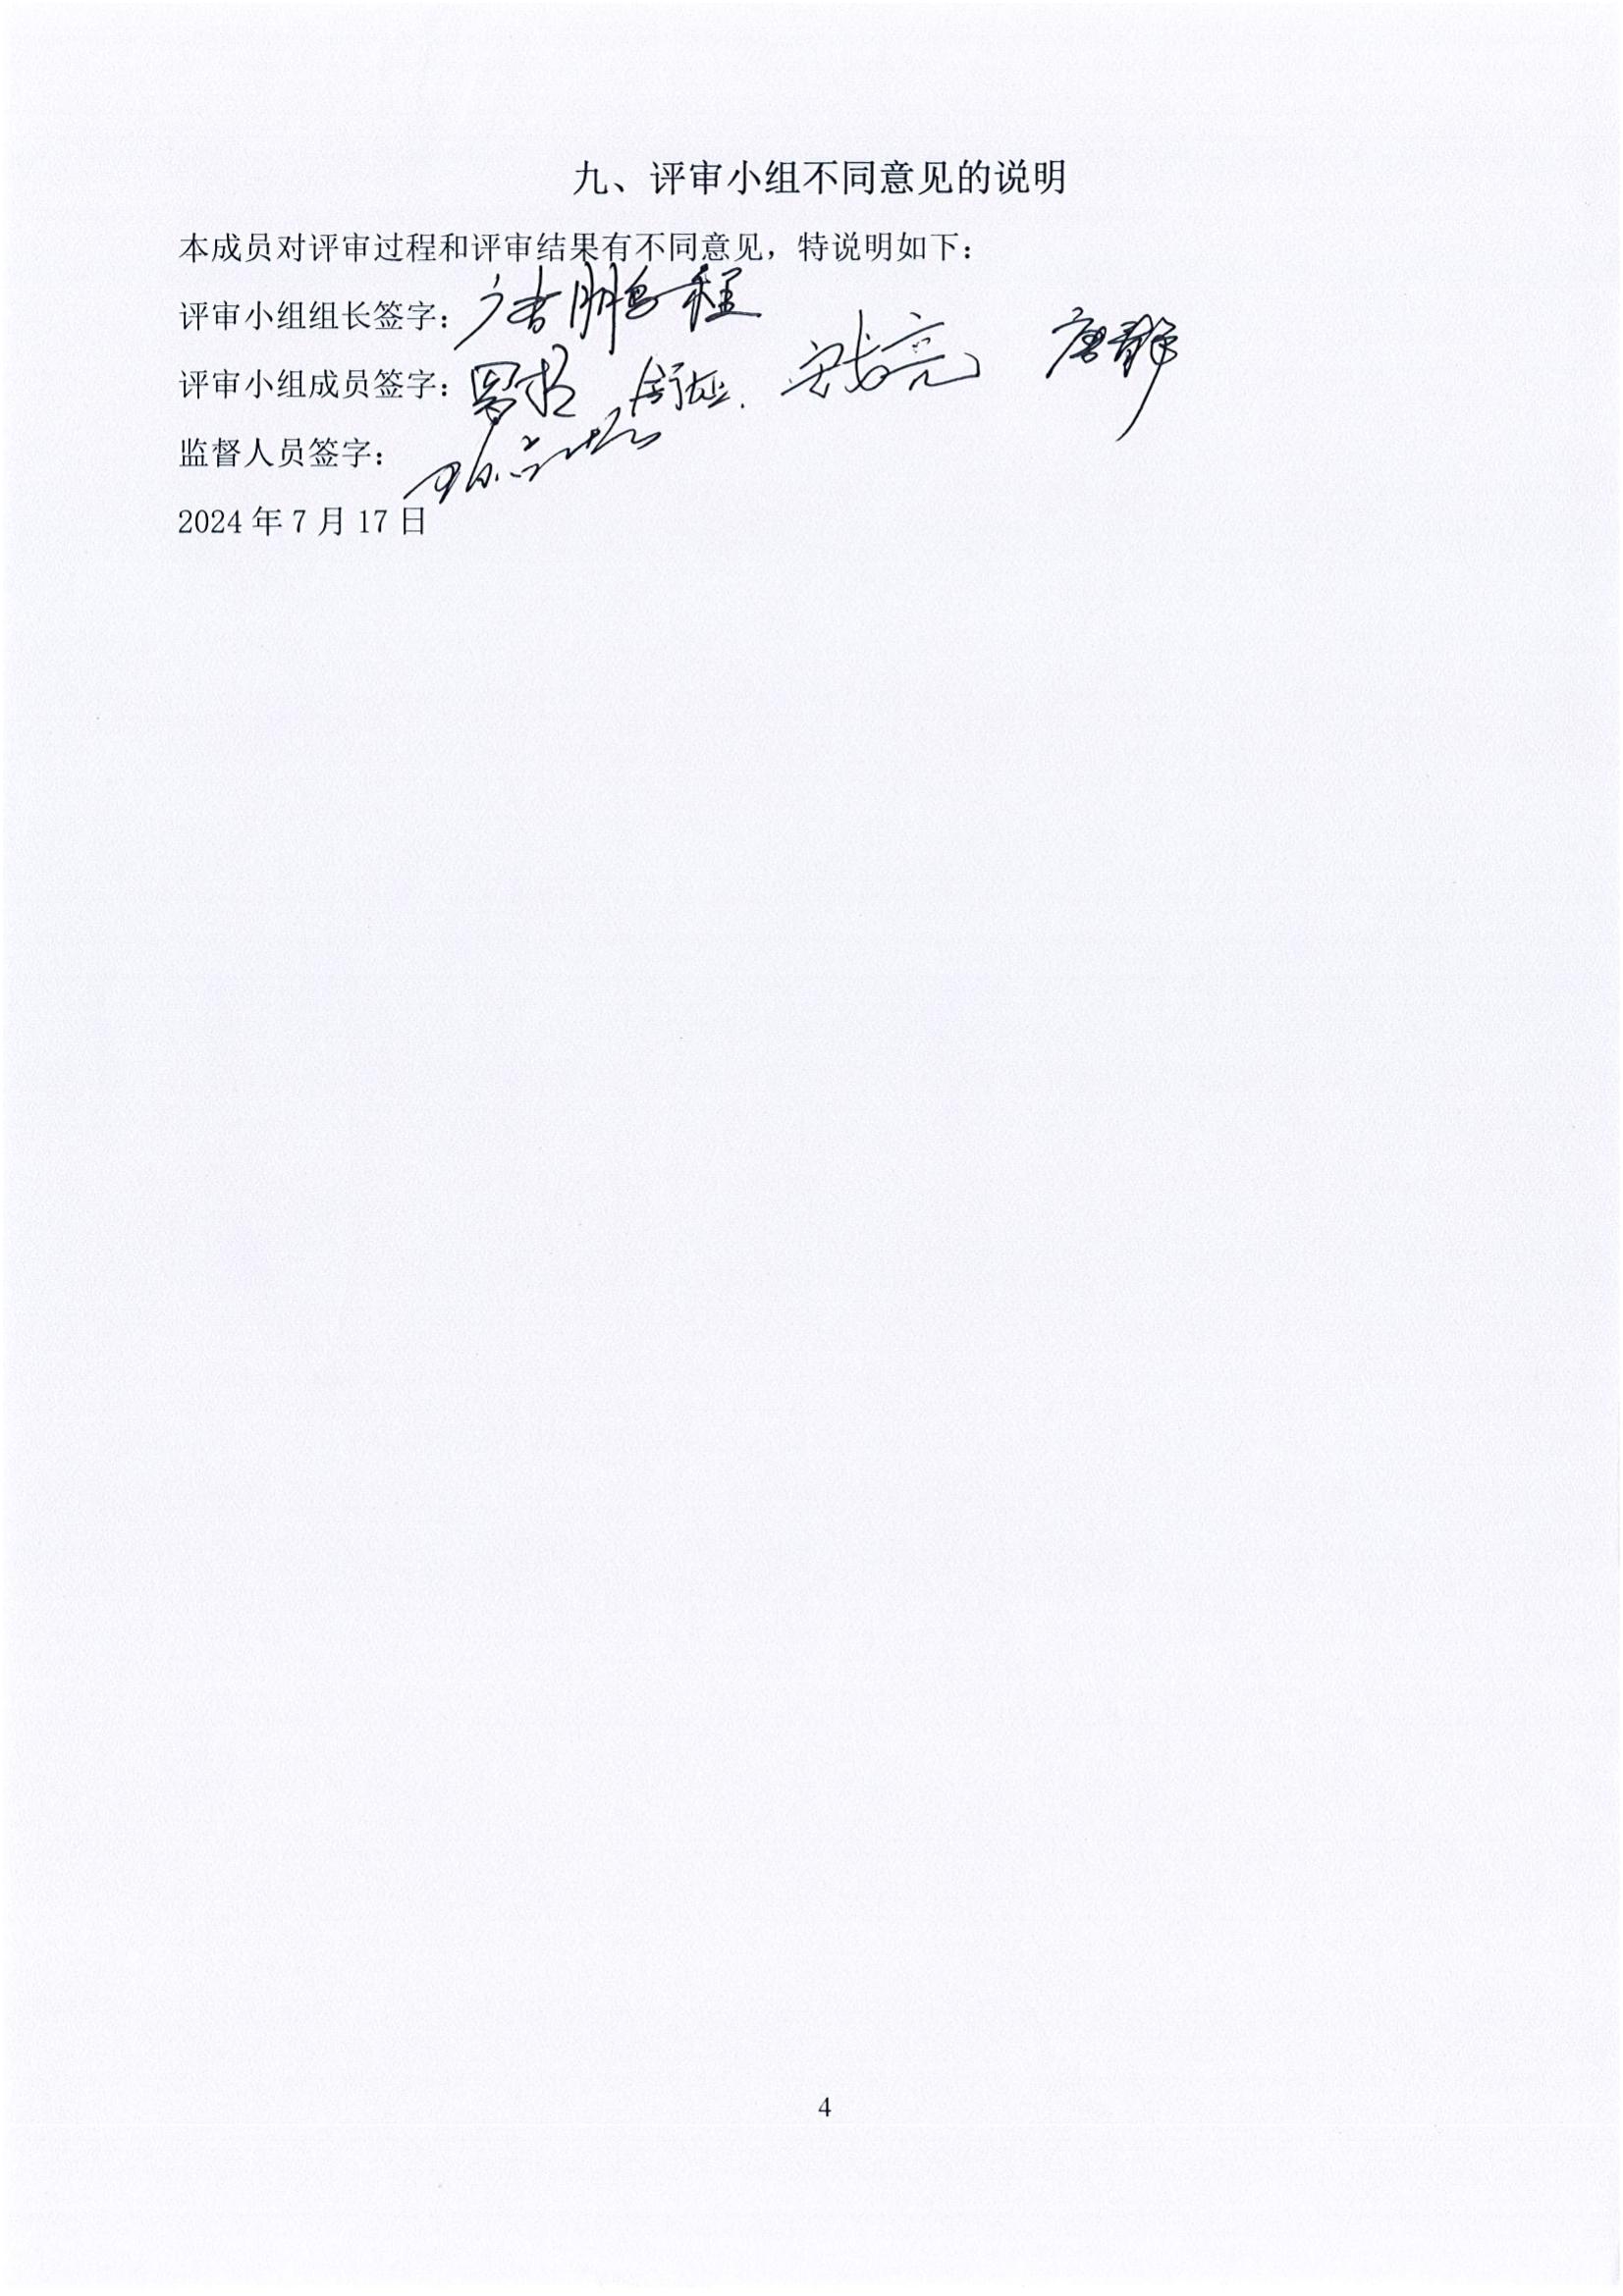 九、评审小组不同意见的说明
本成员对评审过程和评审结果有不同意见，特说明如下：
评审小组组长签字：唐鹏程
评审小组成员签字：唐静
监督人员签字：
2024年7月17日
4